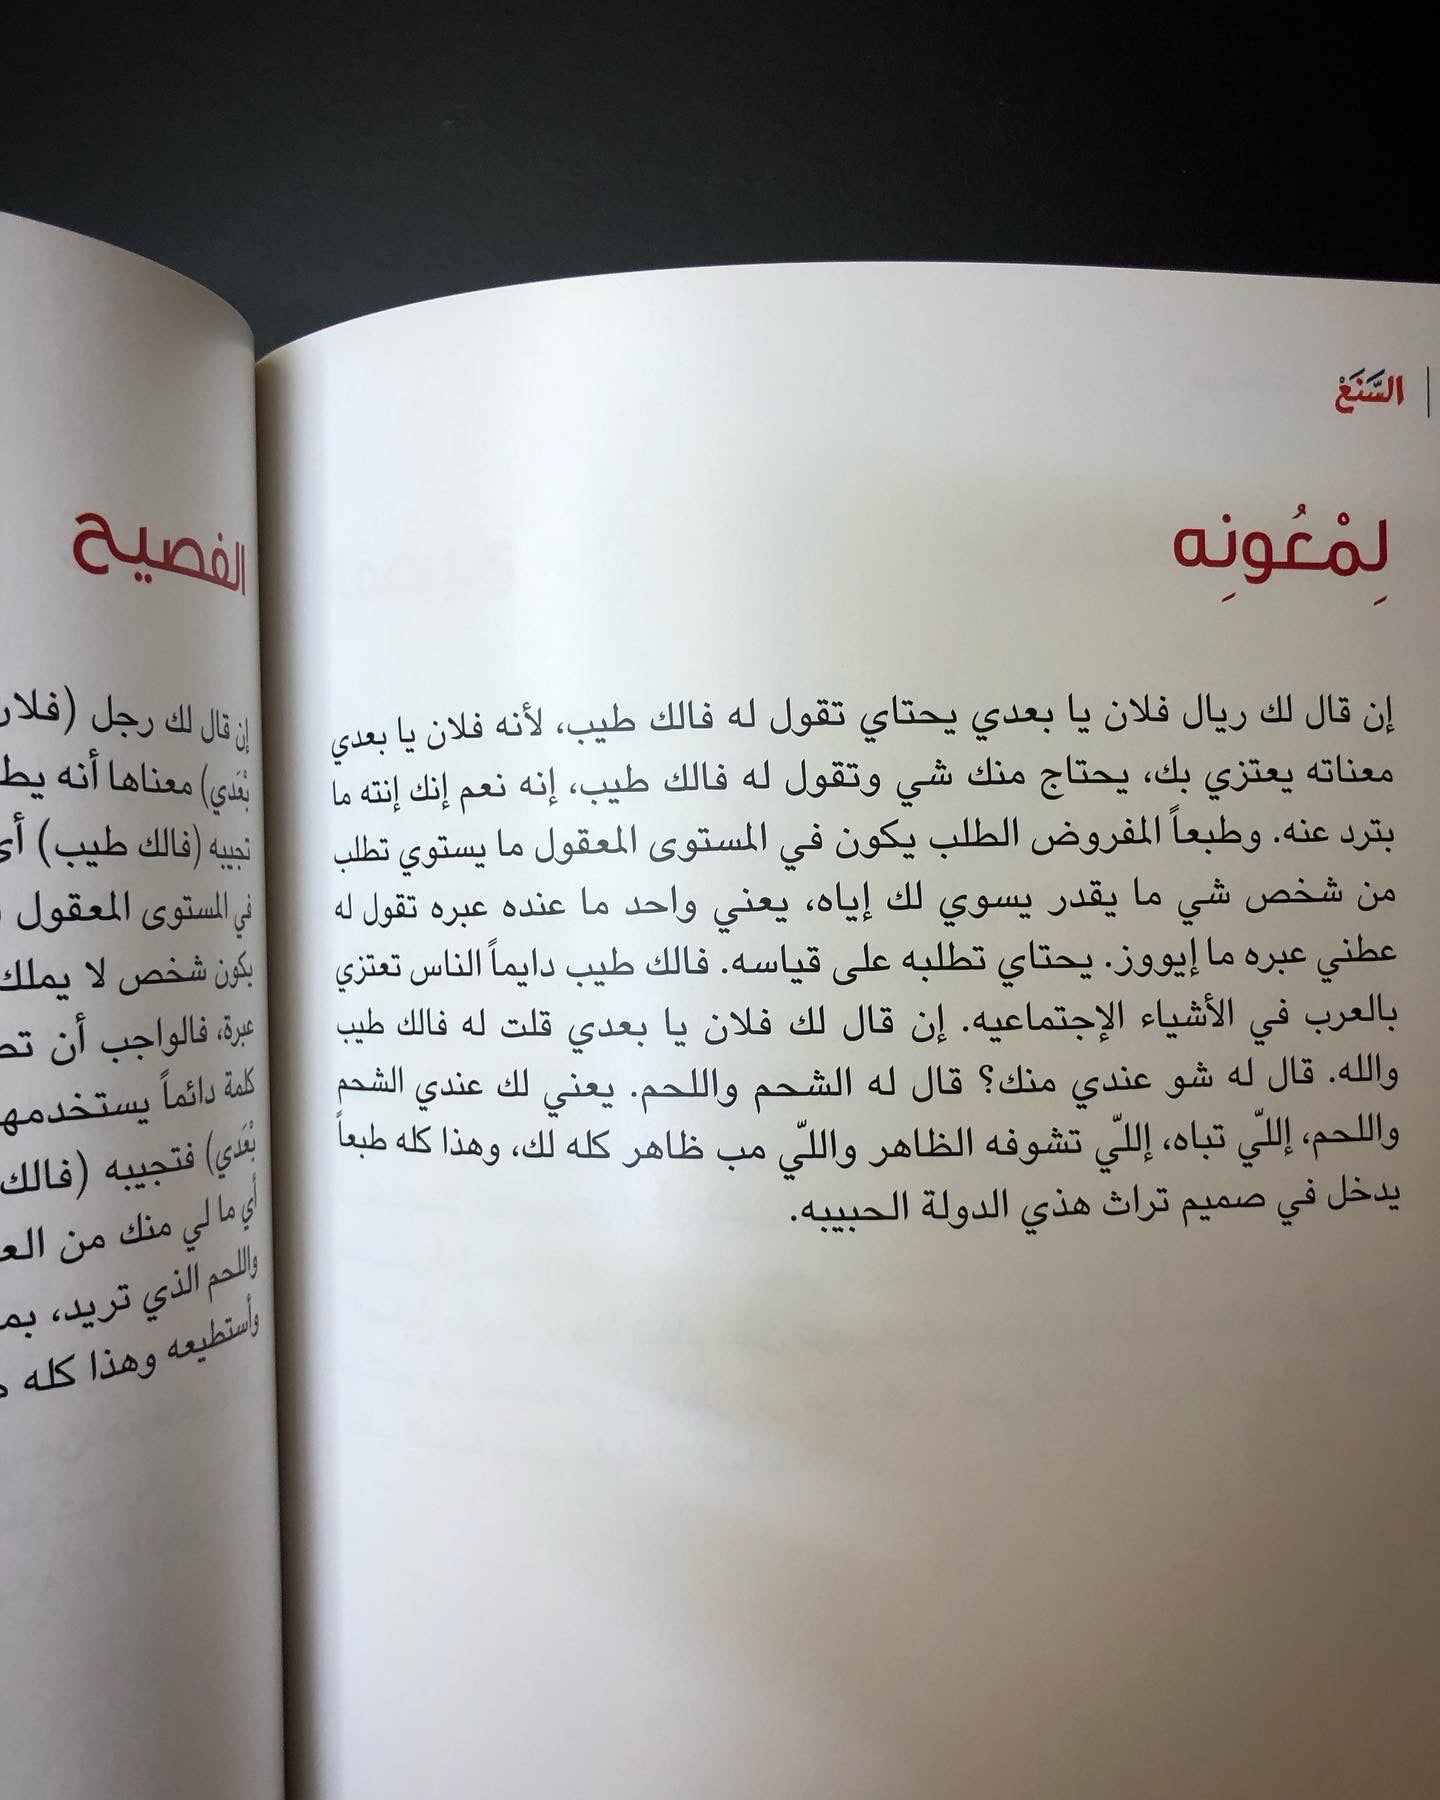 السَّنَعْ
لِمْعُونِه
إن قال لك ريال فلان يا بعدي يحتاي تقول له فالك طيب، لأنه فلان يا بعدي
معناته يعتزي بك، يحتاج منك شي وتقول له فالك طيب، إنه نعم إنك إنته ما
بترد عنه. وطبعاً المفروض الطلب يكون في المستوى المعقول ما يستوي تطلب
من شخص شي ما يقدر يسوي لك إياه، يعني واحد ما عنده عبره تقول له
عطني عبره ما إيووز. يحتاي تطلبه على قياسه. فالك طيب دايماً الناس تعتزي
بالعرب في الأشياء الإجتماعيه. إن قال لك فلان يا بعدي قلت له فالك طيب
والله. قال له شو عندي منك؟ قال له الشحم واللحم. يعني لك عندي الشحم
واللحم، إللّي تباه، إللّي تشوفه الظاهر واللّي مب ظاهر كله لك، وهذا كله طبعاً
يدخل في صميم تراث هذي الدولة الحبيبه.
الفصيح
إن قال لك رجل (فلان
بْعَدي) معناها أنه
تجيبه (فالك طيب)
في المستوى المعقول
يكون شخص لا يملك
عبرة، فالواجب أن
كلمة دائماً يستخدمها
بْعَدي) فتجيبه (فالك
أي ما لي منك من
واللحم الذي تريد،
وأستطيعه وهذا كله